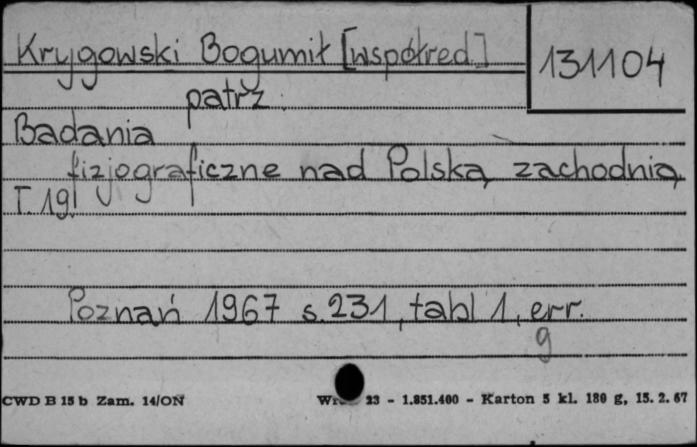 Krygowski Bogumił [współred.]
131104
patrz
Badania
fizjograficzne nad Polską zachodnią
T. 19.
Poznań 1967 s. 231, tabl 1, err.
g
CWD B 15 b Zam. 14/ON
23 - 1.851.400 - Karton 5 kl. 180 g, 15. 2. 67